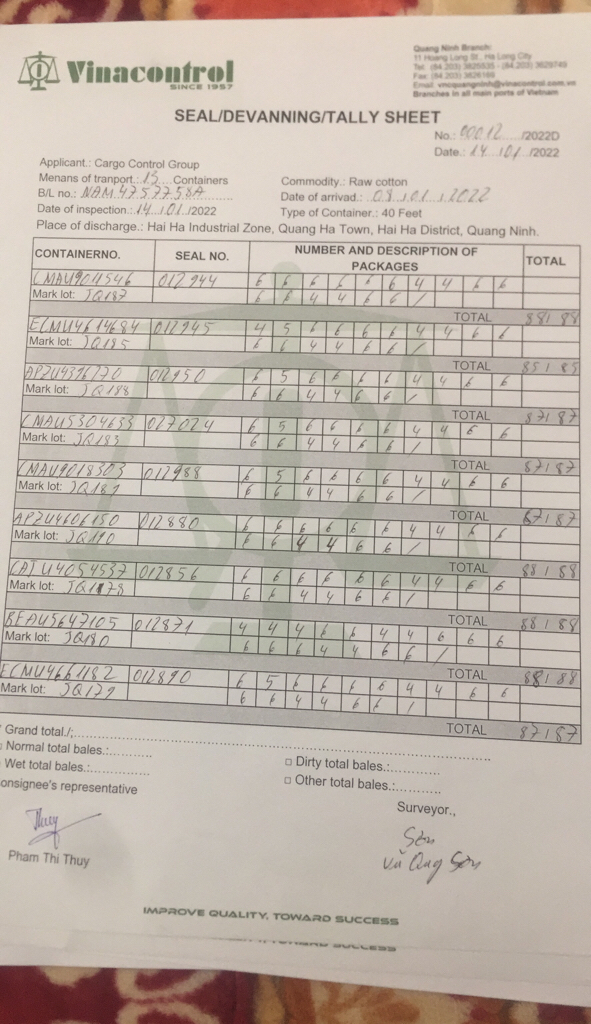 Vinacontrol
SINCE 1957
Quang Ninh Branch:
11 Hoang Long St., Ha Long City
Branches in all main ports of Vietnam
SEAL/DEVANNING/TALLY SHEET
No.: 00012 /2022D
Date.: 14 / 01 / 2022
Applicant.: Cargo Control Group
Menans of tranport.: 13 Containers
Commodity.: Raw cotton
B/L no.: NAM4757758A
Date of arrivad.: 08 / 01 / 2022
Date of inspection.: 14 / 01 / 2022
Type of Container.: 40 Feet
Place of discharge.: Hai Ha Industrial Zone, Quang Ha Town, Hai Ha District, Quang Ninh.
CONTAINERNO. SEAL NO. NUMBER AND DESCRIPTION OF PACKAGES TOTAL
012944 6 6 6 6 6 6 4 4 6 6
Mark lot: JQ187 6 6 4 4 6 6 /
TOTAL 88 / 88
ECMU4614684 012945 4 5 6 6 6 6 4 4 6 6
Mark lot: JQ185 6 6 4 4 6 6 /
TOTAL 85 / 85
012950 6 5 6 6 6 6 4 4 6 6
Mark lot: JQ188 6 6 4 4 6 6 /
TOTAL 87 / 87
CMAU5304633 027024 6 5 6 6 6 6 4 4 6 6
Mark lot: JQ183 6 6 4 4 6 6 /
TOTAL 87 / 87
CMAU9018303 012988 6 5 6 6 6 6 4 4 6 6
Mark lot: 6 6 4 4 6 6 /
TOTAL 87 / 87
APZU4606150 012880 6 6 6 6 6 6 4 4 6 6
Mark lot: JQ190 6 6 4 4 6 6 /
TOTAL 88 / 88
CAIU4054537 012856 6 6 6 6 6 6 4 4 6 6
Mark lot: 6 6 4 4 6 6 /
TOTAL 88 / 88
BEAU5647105 012871 4 4 4 6 6 4 4 6 6 6
Mark lot: JQ180 6 6 6 4 4 6 6 /
TOTAL 88 / 88
ECMU4661182 012890 6 5 6 6 6 6 4 4 6 6
Mark lot: JQ179 6 6 4 4 6 6 /
TOTAL 87 / 87
Grand total./:
Normal total bales.:
□ Dirty total bales.:
Wet total bales.:
□ Other total bales.:
onsignee's representative
Surveyor.,
Thuy
Sơn
Pham Thi Thuy
Vũ Sơn
IMPROVE QUALITY, TOWARD SUCCESS
SUCCESS